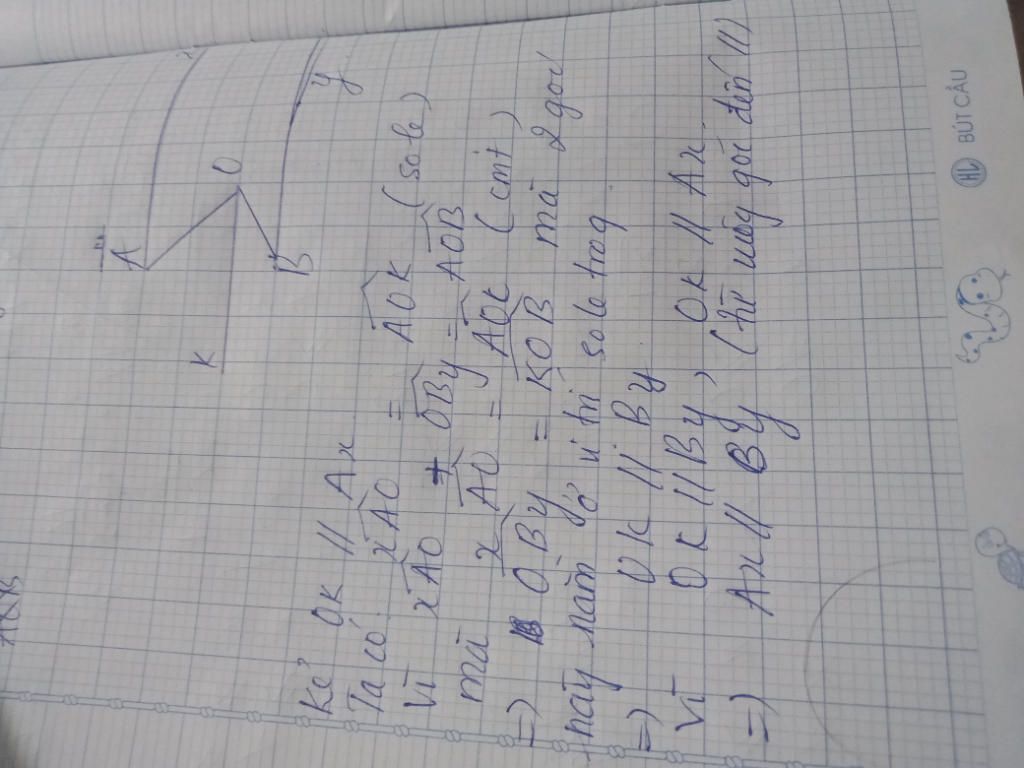 A
x
O
K
B
y
Kẻ OK // Ax
Ta có: xAO = AOK (sole)
Vì xAO + OBy = AOB
mà xAO = AOK (cmt)
=> OBy = KOB mà 2 góc
này nằm ở vị trí sole tag
=> OK // By
Vì OK // By, OK // Ax
=> Ax // By
HL BÚT CẦU